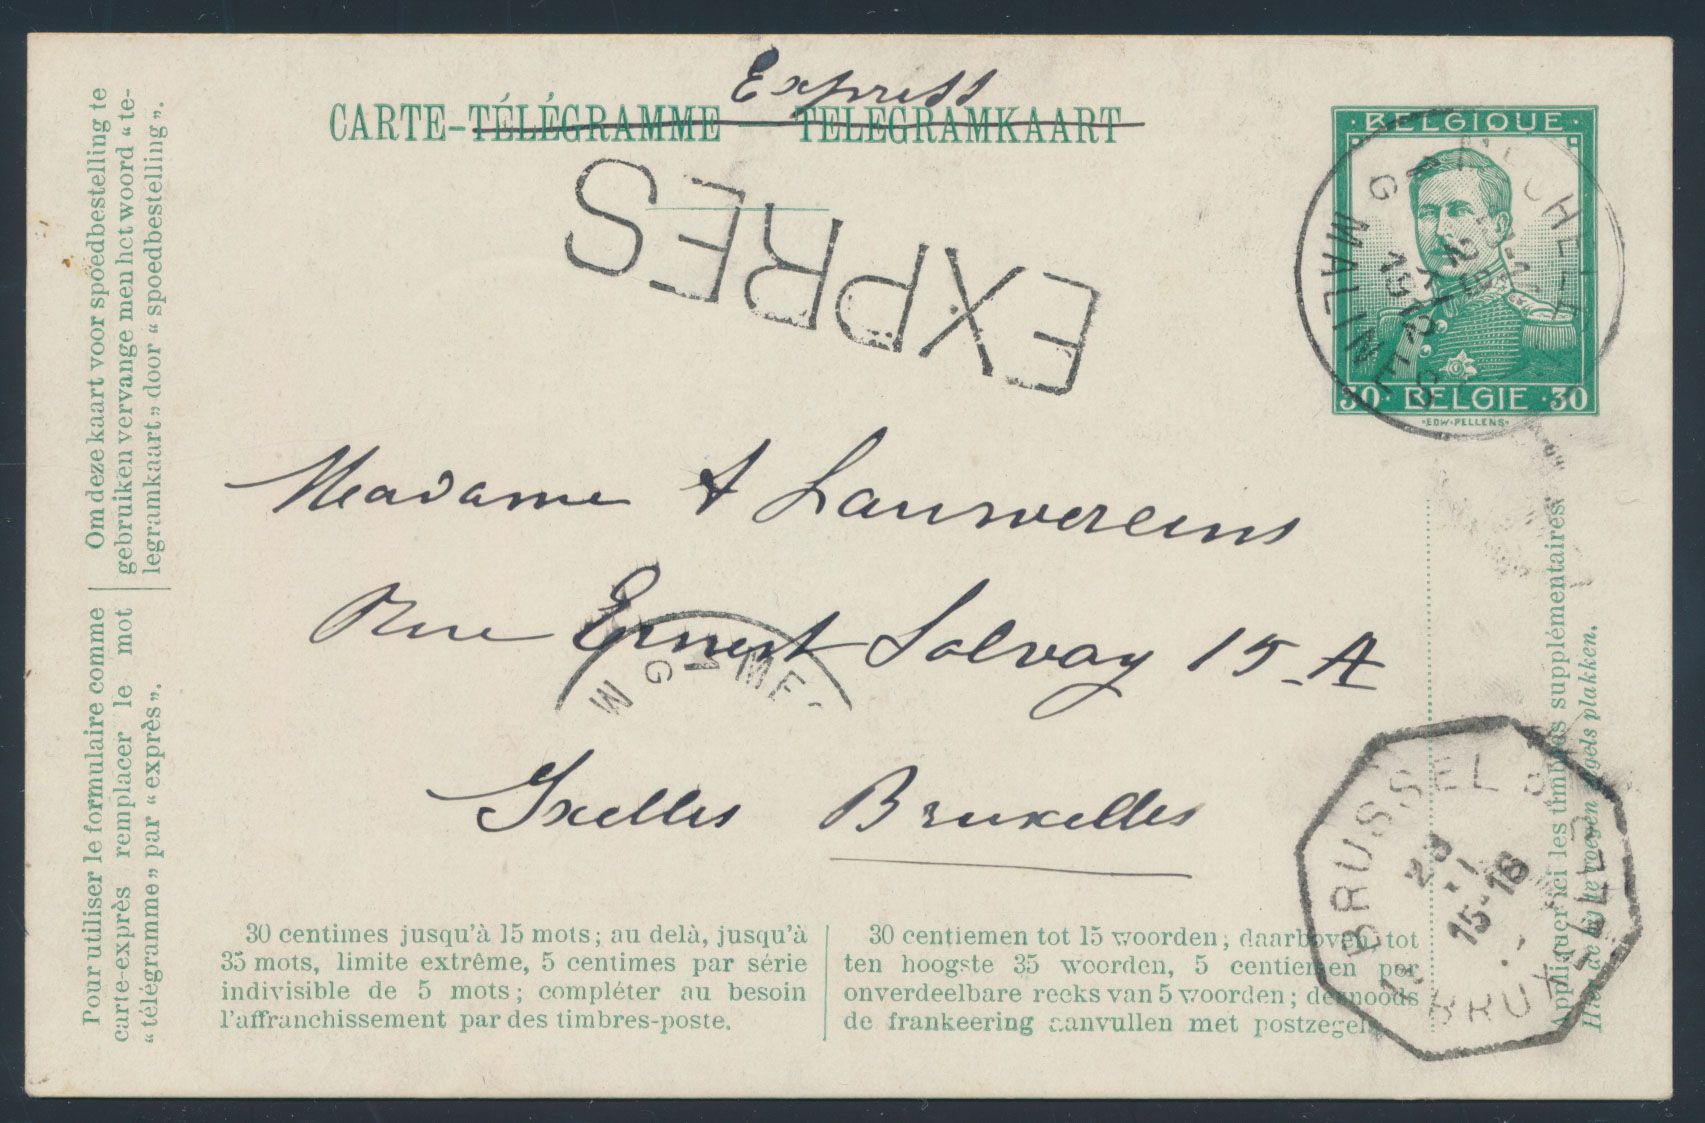 Express
CARTE-TÉLÉGRAMME — TELEGRAMKAART
EXPRES
· BELGIQUE ·
30 · BELGIE · 30
·EDW·PELLENS·
MECHELEN
G
1912
MALINES
G
Madame A Lauwereins
Rue Ernest Solvay 15 A
Ixelles Bruxelles
M G
ME
Om deze kaart voor spoedbestelling te
gebruiken vervange men het woord “te-
legramkaart„ door “ spoedbestelling„.
Pour utiliser le formulaire comme
carte-exprès remplacer le mot
“télégramme„ par “exprès„.
30 centimes jusqu’à 15 mots; au delà, jusqu’à
35 mots, limite extrême, 5 centimes par série
indivisible de 5 mots; compléter au besoin
l’affranchissement par des timbres-poste.
30 centiemen tot 15 woorden; daarboven, tot
ten hoogste 35 woorden, 5 centiemen per
onverdeelbare reeks van 5 woorden; desnoods
de frankeering aanvullen met postzegels.
Appliquer ici les timbres supplémentaires.
Hier de bij te voegen zegels plakken.
BRUSSEL
15-16
BRUXELLES